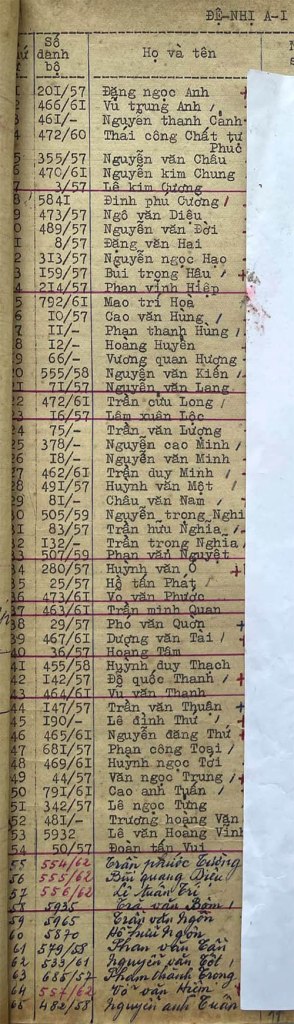 ĐỆ-NHỊ A-I
Số danh bộ
Họ và tên
1 201/57 Đặng ngọc Anh +
2 466/61 Vũ trung Anh /
3 461/- Nguyễn thanh Cảnh
4 472/60 Thai công Chất tự Phúc
5 355/57 Nguyễn văn Châu
6 470/61 Nguyễn kim Chung
7 3/57 Lê kim Cương
8 5841 Đinh phú Cường /
9 473/57 Ngô văn Diệu
10 489/57 Nguyễn văn Đời
11 8/57 Đặng văn Hai
12 313/57 Nguyễn ngọc Hạo
13 159/57 Bùi trọng Hậu /
14 214/57 Phan vĩnh Hiệp
15 792/61 Mao trí Hoà
16 10/57 Cao văn Hùng /
17 11/- Phạn thanh Hùng /
18 12/- Hoàng Huyền
19 66/- Vương quan Hượng
20 555/58 Nguyễn văn Kiển /
21 71/57 Nguyễn văn Lang
22 472/61 Trần cửu Long /
23 16/57 Lâm xuân Lộc
24 75/- Trần văn Lượng
25 378/- Nguyễn cao Minh /
26 18/- Nguyễn văn Minh
27 462/61 Trần duy Minh /
28 491/57 Huỳnh văn Một /
29 81/- Châu văn Nam /
30 505/59 Nguyễn trọng Nghi
31 83/57 Trần hữu Nghĩa /
32 132/- Trần trong Nghĩa
33 507/59 Phan văn Nguyệt
34 280/57 Huỳnh văn Ô +
35 25/57 Hồ tấn Phát /
36 473/61 Vo văn Phước
37 463/61 Trần minh Quan
38 29/57 Phó văn Quờn +
39 467/61 Dương văn Tài / +
40 36/57 Hoàng Tâm
41 455/58 Huỳnh duy Thạch
42 142/57 Đỗ quốc Thanh / +
43 464/61 Vu văn Thanh
44 147/57 Trần văn Thuân +
45 190/- Lê đình Thư / +
46 465/61 Nguyễn đăng Thứ +
47 681/57 Phạn công Toại /
48 469/61 Huỳnh ngọc Tới
49 44/57 Văn ngọc Trung / +
50 791/61 Cao anh Tuấn /
51 342/57 Lê ngọc Tửng
52 481/- Trương hoàng Văn
53 5932 Lê văn Hoàng Vinh
54 50/57 Đoàn tấn Vui
55 554/62 Trần phước Tường
56 555/62 Bùi quang Diệu
57 556/62 Lê Xuân Trí
58 5935 Trà văn Bôm /
59 5965 Trần văn Ngôn
60 5870 Hồ hữu Ngôn
61 579/58 Phan văn Tấn
62 533/61 Nguyễn văn Tốt /
63 685/57 Phạm thành Trong
64 557/62 Võ văn Hiếm +
65 482/58 Nguyễn anh Tuấn